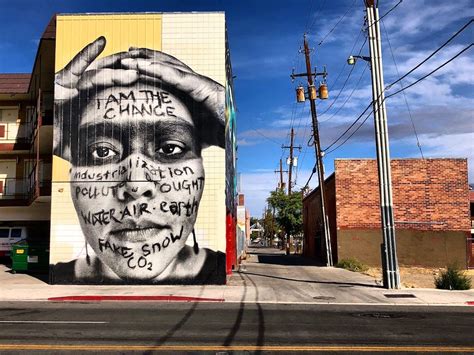 I AM THE
CHANGE
industrialization
POLLUTION DROUGHT
WATER.AIR.earth
FAKE SNOW
CO2